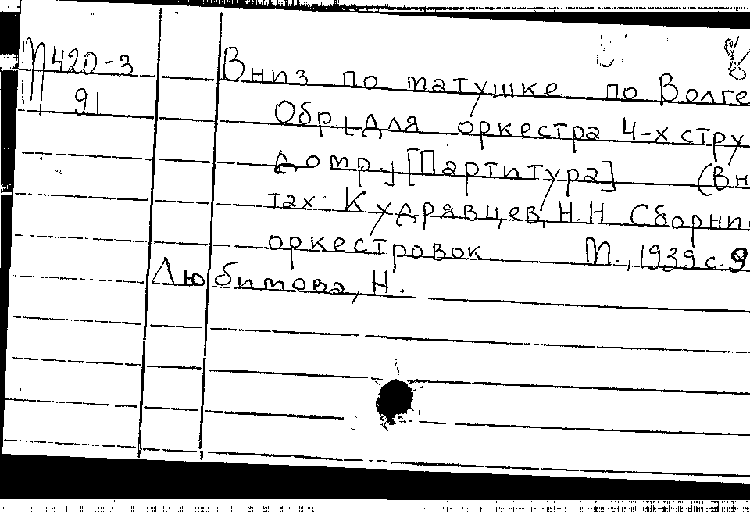 М420-3
91
Вниз по матушке по Волге
Обр. для оркестра 4-х стру
домр. [Партитура] (Вн
тах: Кудрявцев, Н.Н Сборни
оркестровок М., 1939 с. 9
Любимова, Н.